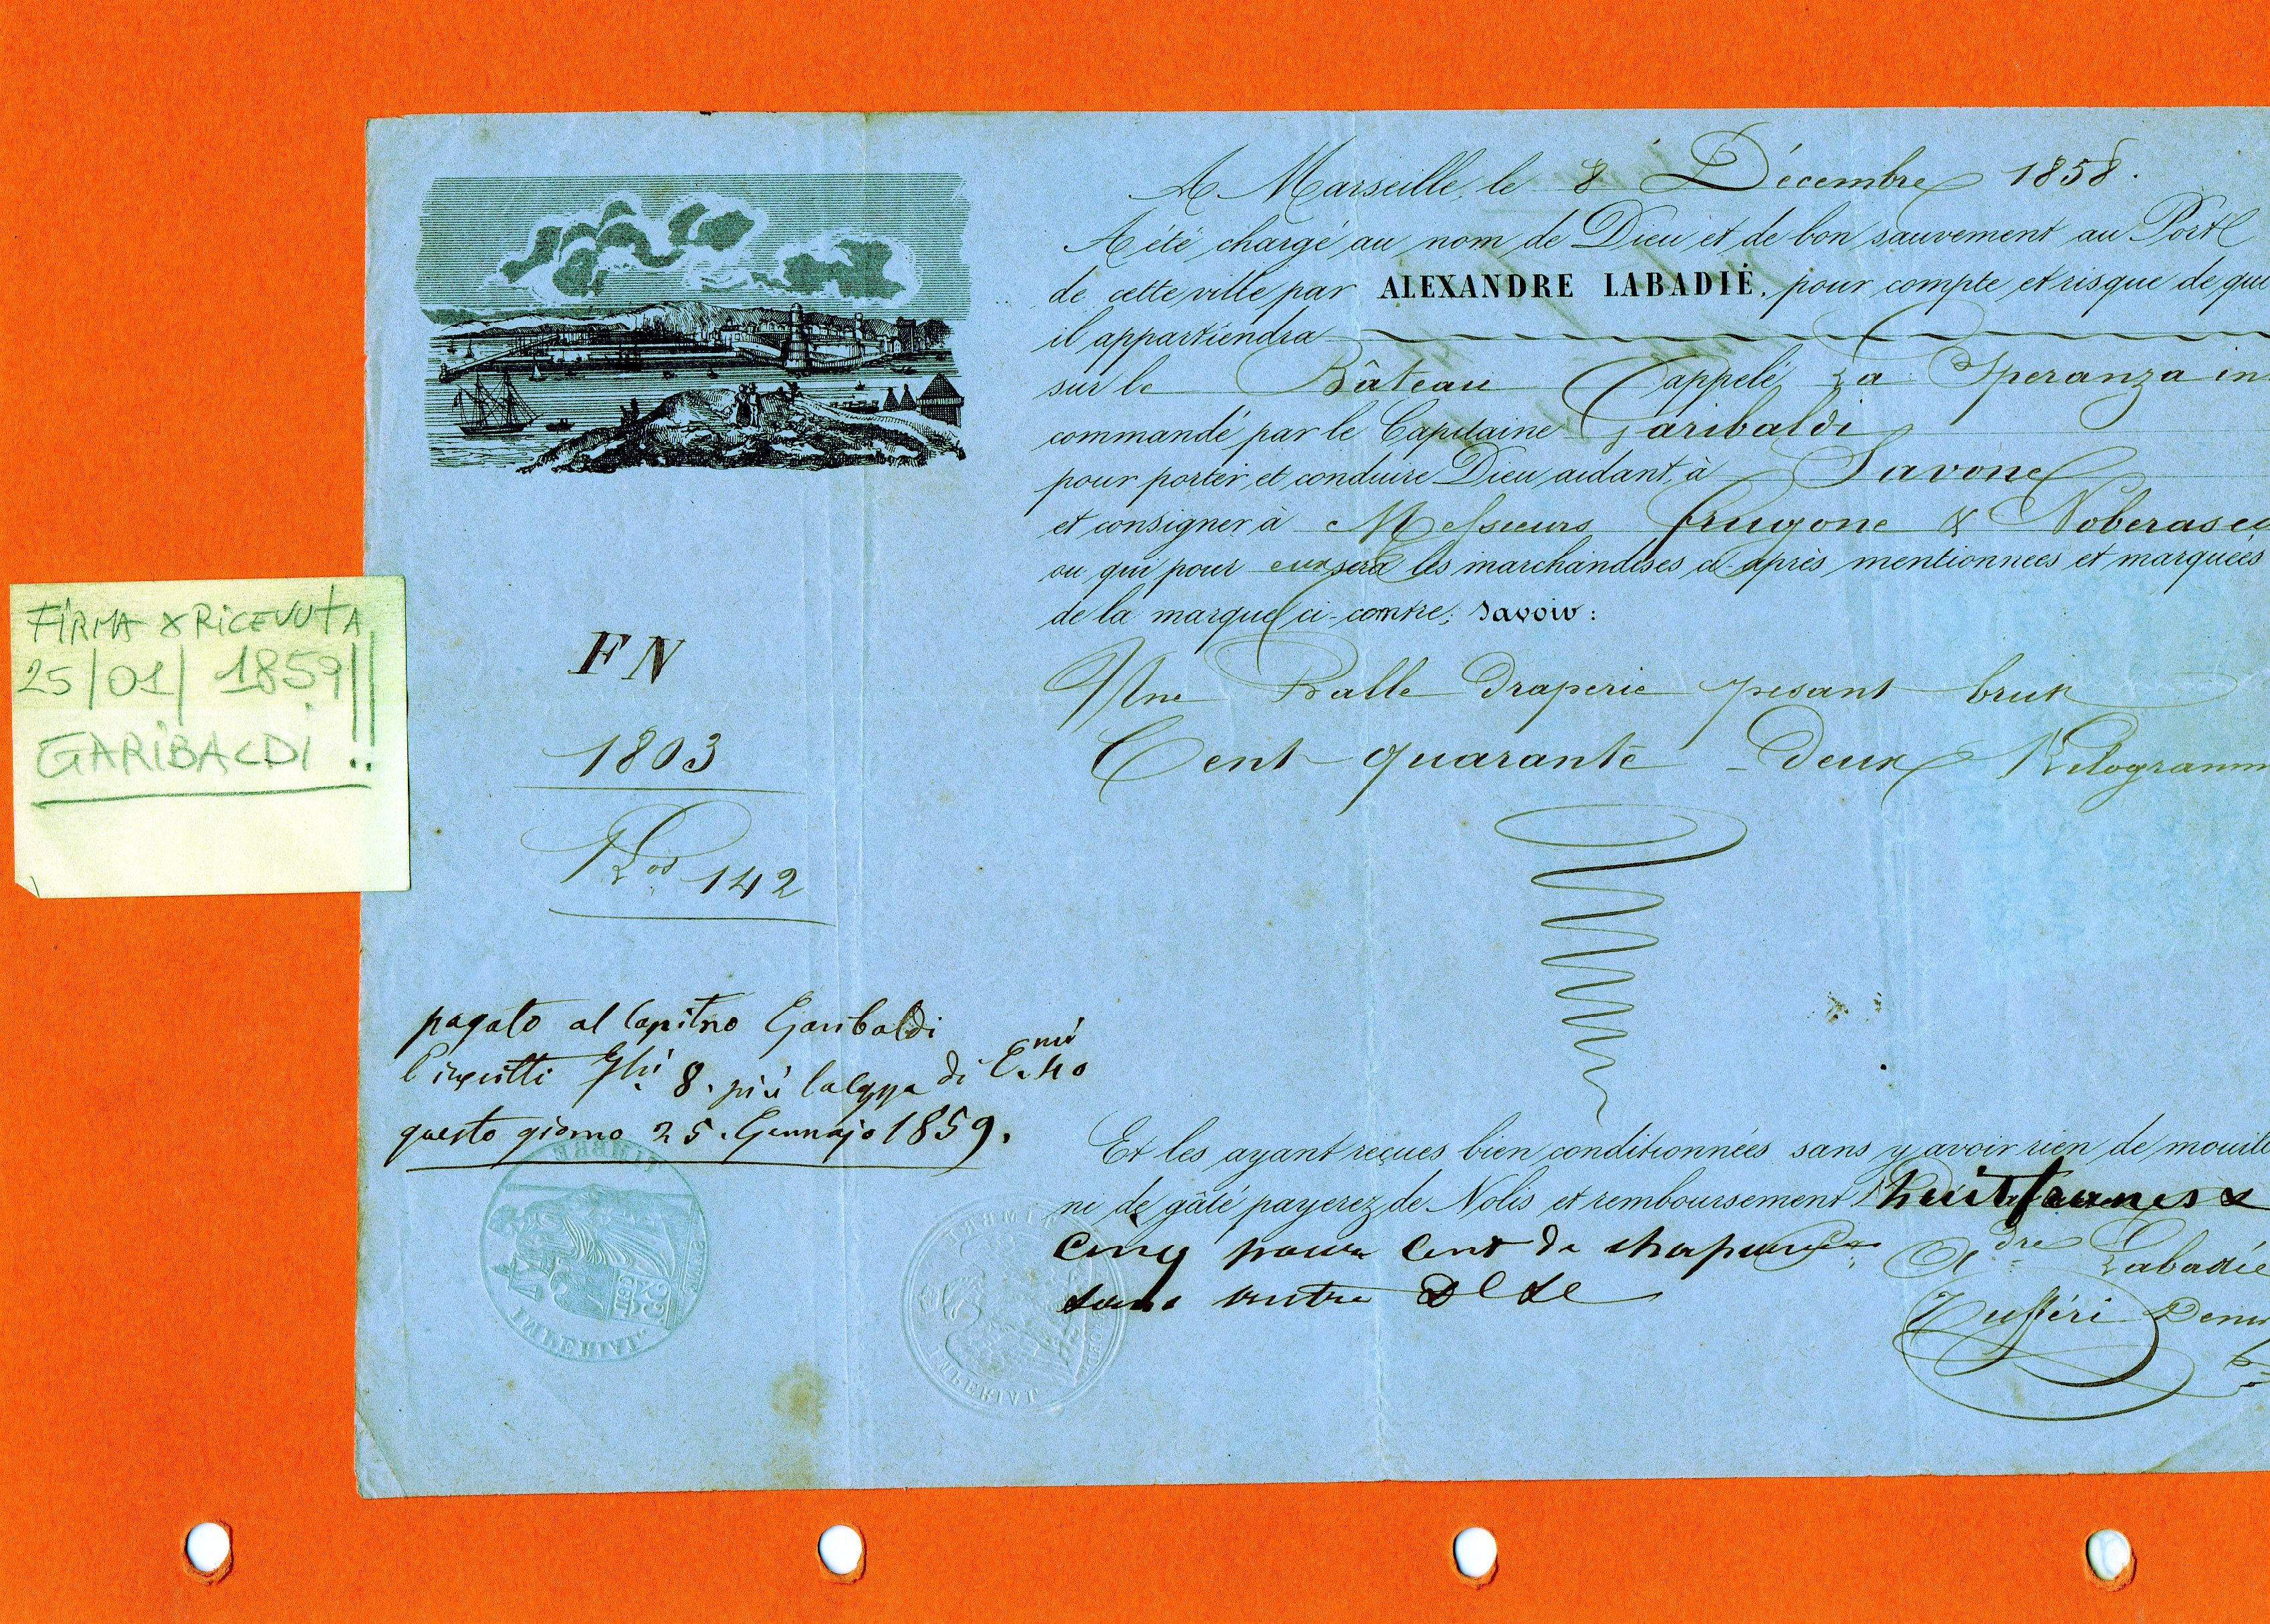 A Marseille, le 8 Décembre 1858.
A été chargé au nom de Dieu et de bon sauvement au Port
de cette ville par ALEXANDRE LABADIÉ, pour compte et risque de qui
il appartiendra
sur le Bâteau appelé La Speranza in
commandé par le Capitaine Garibaldi
pour porter et conduire Dieu aidant, à Savone
et consigner à Messieurs Frugone & Noberasco
ou qui pour eux sera les marchandises ci-après mentionnées et marquées
de la marque ci-contre; savoir:
FIRMA X RICEVUTA
25/01/1859!!
GARIBALDI!!
FN
1803
Kos 142
Une Balle Draperie pesant brut
Cent quarante-Deux Kilogramm
pagato al Capitno Garibaldi
8. più di 40
questo giorno 25. Gennajo 1859.
Et les ayant reçues bien conditionnées sans y avoir rien de mouillé
ni de gâté payerez de Nolis et remboursement huit francs &
cinq pour cent de chapeau
sans autre
Adre Labadié
TIMBRE
IMPERIAL
TIMBRE
IMPERIAL